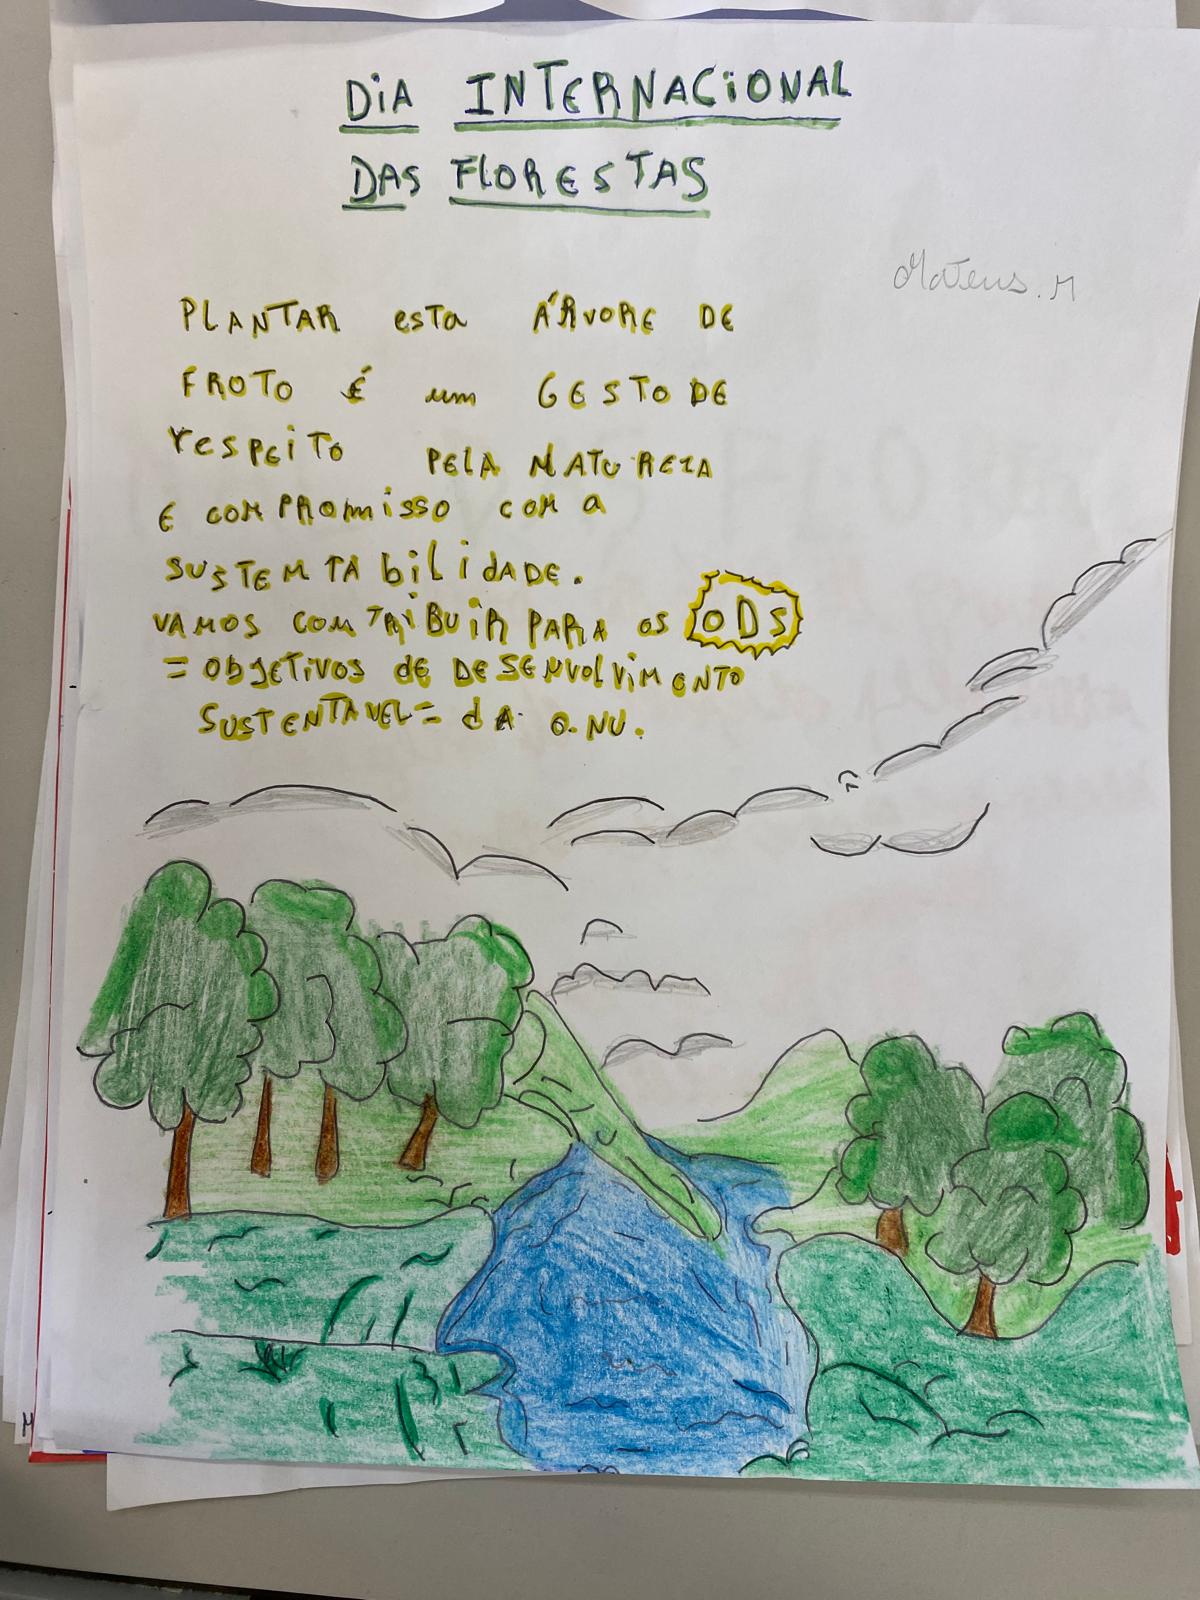 DiA INTERNACiONAL
DAS FlORESTAS
Mateus. M
PLANTAR esta ÁRVORE DE
FROTO É um GESTO DE
respeito PELA NATUREZA
E COMPROmisso com a
SUSTEMTAbiLidADE.
VAMOS COMTRiBUiR PARA OS ODS
= OBJETIVOS dE DESENVOLVIMENTO
SUSTENTAVEL = dA O.NU.